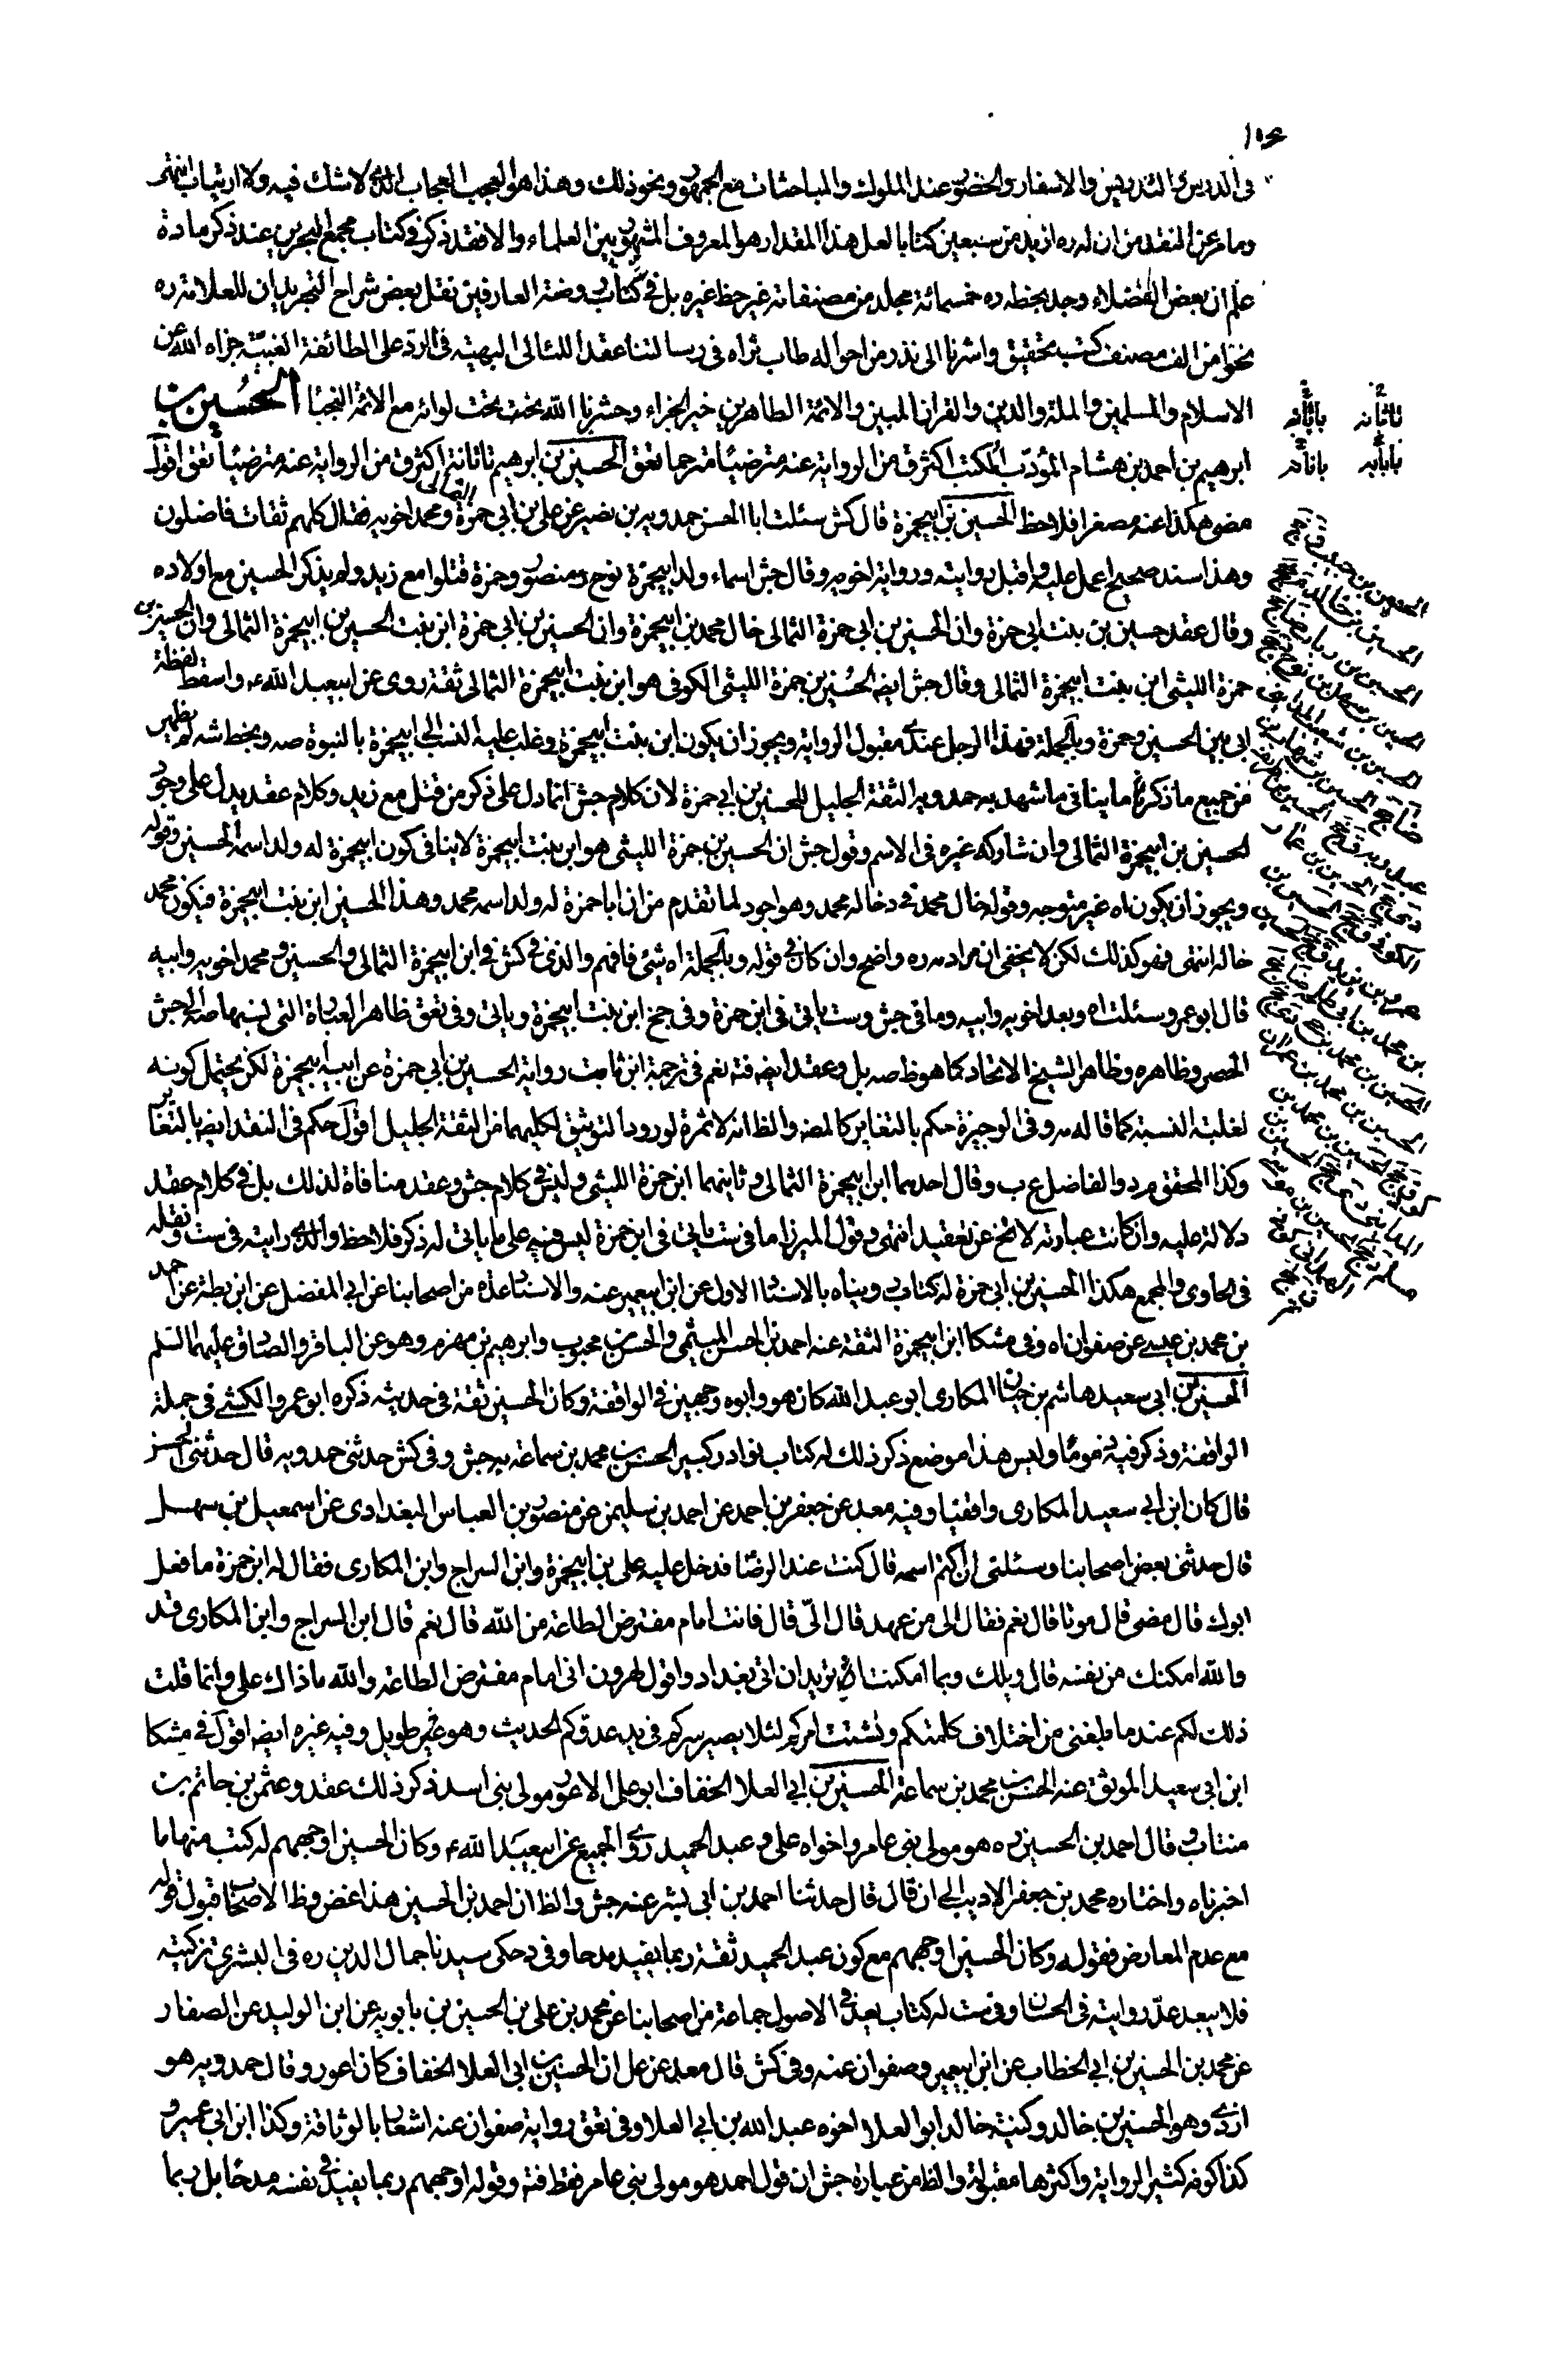 ١٠٦
فى الدرس والتدريس والاسفار والحضور عند الملوك والمباحثات مع الجمهور ونحو ذلك وهذا هو العجب العجاب الذى لا شك فيه ولا ارتياب انتهى
وما مر عن النقد من ان له ره ازيد من سبعين كتابا لعل هذا المقدار هو المعروف المشهور بين العلماء والا فقد ذكر فى كتاب مجمع البحرين عند ذكر مادة
علم ان بعض الفضلاء وجد بخطه ره خمسمائة مجلد من مصنفاته غير خط غيره بل فى كتاب روضة العارفين نقل بعض شراح التجريد ان للعلامة ره
نحوا من الف مصنف كتب تحقيق واشرنا الى نذر من احواله طاب ثراه فى رسالتنا عقد اللئالى البهيه فى الرد على الطائفة الغبيّة جزاه الله عن
الاسلام والمسلمين والملة والدين والقران المبين والائمة الطاهرين خير الجزاء وحشرنا الله تحت لوائه مع الائمة النجبا الحسين بن
ابرهيم بن احمد بن هشام المؤدّب المكتب اكثر ق من الرواية عنه مترضيًا مترحما تعق الحسين بن ابرهيم تاتانه اكثر ق من الرواية عنه مترضيًا تعق اقول
مضى هكذا عنه مصغرا فلاحظ الحسين بن ابيحمزة قال كش سئلت ابا الحسن حمدويه بن نصير عن على بن ابى حمزة الثمالى ومحمد اخويه فقال كلهم ثقات فاضلون
وهذا سند صحيح اعمل عليه واقبل روايته ورواية اخويه وقال جش اسماء ولد ابيحمزة نوح ومنصور وحمزة قتلوا مع زيد ولم يذكر الحسين مع اولاده
وقال عقد حسين بن بنت ابى حمزة وان الحسين بن ابى حمزة الثمالى خال محمد بن ابيحمزة وان الحسين بن ابى حمزة ابن بنت الحسين بن ابيحمزة الثمالى وان الحسين بن
حمزة الليثى ابن بنت ابيحمزة الثمالى وقال جش ايضا الحسين بن حمزة الليثى الكوفى هو ابن بنت ابيحمزة الثمالى ثقة روى عن ابيعبد الله ع واسقط لفظة
ابى بين الحسين وحمزة وبالجملة فهذا الرجل عندى مقبول الرواية ويجوز ان يكون ابن بنت ابيحمزة وغلب عليه النسب الى ابيحمزة بالنبوة صه وبخط شه لم يظهر
من جميع ما ذكره ما ينافى ما شهد به حمدويه الثقة الجليل للحسين بن ابى حمزة لان كلام جش انما دل على ذكر من قتل مع زيد وكلام عقد يدل على وجود
لحسين بن ابيحمزة الثمالى وان شاركه غيره فى الاسم وقول جش ان الحسين بن حمزة الليثى هو ابن بنت ابيحمزة لا ينافى كون ابيحمزة له ولد اسمه الحسين وقوله
ويجوز ان يكون اه غير متوجه وقوله خال محمد فى د خاله محمد وهو اجود لما تقدم من ان ابا حمزة له ولد اسمه محمد وهذا الحسين ابن بنت ابيحمزة فيكون محمد
خاله انتهى فهو كذلك لكن لا يخفى ان مراده ره واضح وان كان فى قوله وبالجملة اه شئ فافهم والذى فى كش فى ابن ابيحمزة الثمالى والحسين ومحمد اخويه وابيه
قال ابو عمرو سئلت اه وبعد اخويه وابيه وما فى جش وست ياتى فى ابن حمزة وفى جخ ابن بنت ابيحمزة وياتى وفى تعق ظاهر العبارة التى نسبها صه الى جش
الحصر وظاهره وظاهر الشيخ الاتحاد كما هو ظ صه بل وعقد ايضا فته نعم فى ترجمة ابن ثابت رواية الحسين بن ابى حمزة عن ابيه ابيحمزة لكن يحتمل كونه
لغلبة النسبة كما قاله صه وفى الوجيزة حكم بالتغاير كالمص والظ انه لا ثمرة لورود التوثيق لكليهما من الثقة الجليل اقول حكم فى النقد ايضا بالتغاير
وكذا المحقق مرد والفاضل ع ب وقال احدهما ابن ابيحمزة الثمالى وثانيهما ابن حمزة الليثى وليس فى كلام جش وعقد منافاة لذلك بل فى كلام عقد
دلالة عليه وان كانت عبارته لا تخ عن تعقيد انتهى وقول الميرزا ما فى ست ياتى فى ابن حمزة ليس فيه على ما ياتى له ذكر فلاحظ والذى رايته فى ست ونقله
فى الحاوى والمجمع هكذا الحسين بن ابى حمزة له كتاب رويناه بالاسناد الاول عن ابن ابيعمير عنه والاسناد عدة من اصحابنا عن ابى المفضل عن ابن بطة عن احمد
بن محمد بن عيسى عن صفوان اه وفى مشكا ابن ابيحمزة الثقة عنه احمد بن الحسن الميثمى والحسن بن محبوب وابرهيم بن مهزم وهو عن الباقر والصادق عليهما السلم
الحسين بن ابى سعيد هاشم بن حيان المكارى ابو عبد الله كان هو وابوه وجهين فى الواقفة وكان الحسين ثقة فى حديثه ذكره ابو عمرو الكشى فى جملة
الواقفة وذكر فيه ذموما وليس هذا موضع ذكر ذلك له كتاب نوادر كبير الحسن بن محمد بن سماعة به جش وفى كش حدثنى حمدويه قال حدثنى الحسن
قال كان ابن ابى سعيد المكارى واقفيا وفيه معد عن جعفر بن احمد عن احمد بن سليمن عن منصور بن العباس البغدادى عن اسمعيل بن سهل
قال حدثنى بعض اصحابنا وسئلنى ان اكتم اسمه قال كنت عند الرضا فدخل عليه على بن ابيحمزة وابن السراج وابن المكارى فقال له ابن حمزة ما فعل
ابوك قال مضى قال موتا قال نعم فقال الى من عهد قال الىّ قال فانت امام مفترض الطاعة من الله قال نعم قال ابن السراج وابن المكارى قد
والله امكنك من نفسه قال ويلك وبما امكنت اتريد ان اتى بغداد واقول لهرون انى امام مفترض الطاعة والله ما ذاك على وانما قلت
ذلك لكم عندما بلغنى من اختلاف كلمتكم وتشتت امركم لئلا يصير سركم فى يد عدوكم الحديث وهو غير طويل وفيه غيره ايضا اقول فى مشكا
ابن ابى سعيد الموثق عنه الحسن بن محمد بن سماعة الحسين بن ابى العلا الخفاف ابو على الاعور مولى بنى اسد ذكر ذلك عقد وعثمن بن حاتم بن
منتاب وقال احمد بن الحسين ره هو مولى بنى عامر واخواه على وعبد الحميد روى الجميع عن ابيعبد الله ع وكان الحسين اوجههم له كتب منها ما
اخبرناه واختاره محمد بن جعفر الاديب الى ان قال قال حدثنا احمد بن ابى بشر عنه جش والظ ان احمد بن الحسين هذا غض وظ الاصحاب قبول قوله
مع عدم المعارض فقوله وكان الحسين اوجههم مع كون عبد الحميد ثقة ربما يفيد مدحا وفى د حكى سيدنا جمال الدين ره فى البشرى تزكيته
فلا يبعد عدّ روايته فى الحسان وفى ست له كتاب يعد فى الاصول جماعة من اصحابنا عن محمد بن على بن الحسين بن بابويه عن ابن الوليد عن الصفار
عن محمد بن الحسين بن ابى الخطاب عن ابن ابيعمير وصفوان عنه وفى كش قال معد عن عل ان الحسين بن ابى العلا الخفاف كان اعور وقال حمدويه هو
ازدى وهو الحسين بن خالد وكنية خالد ابو العلا اخوه عبد الله بن ابى العلا وفى تعق رواية صفوان عنه اشعار بالوثاقة وكذا ابن ابى عمير و
كذا كونه كثير الرواية واكثرها مقبولة والظ من عبارة جش ان قول احمد هو مولى بنى عامر فقط فته وقوله اوجههم ربما يفيد فى نفسه مدحًا بل ربما